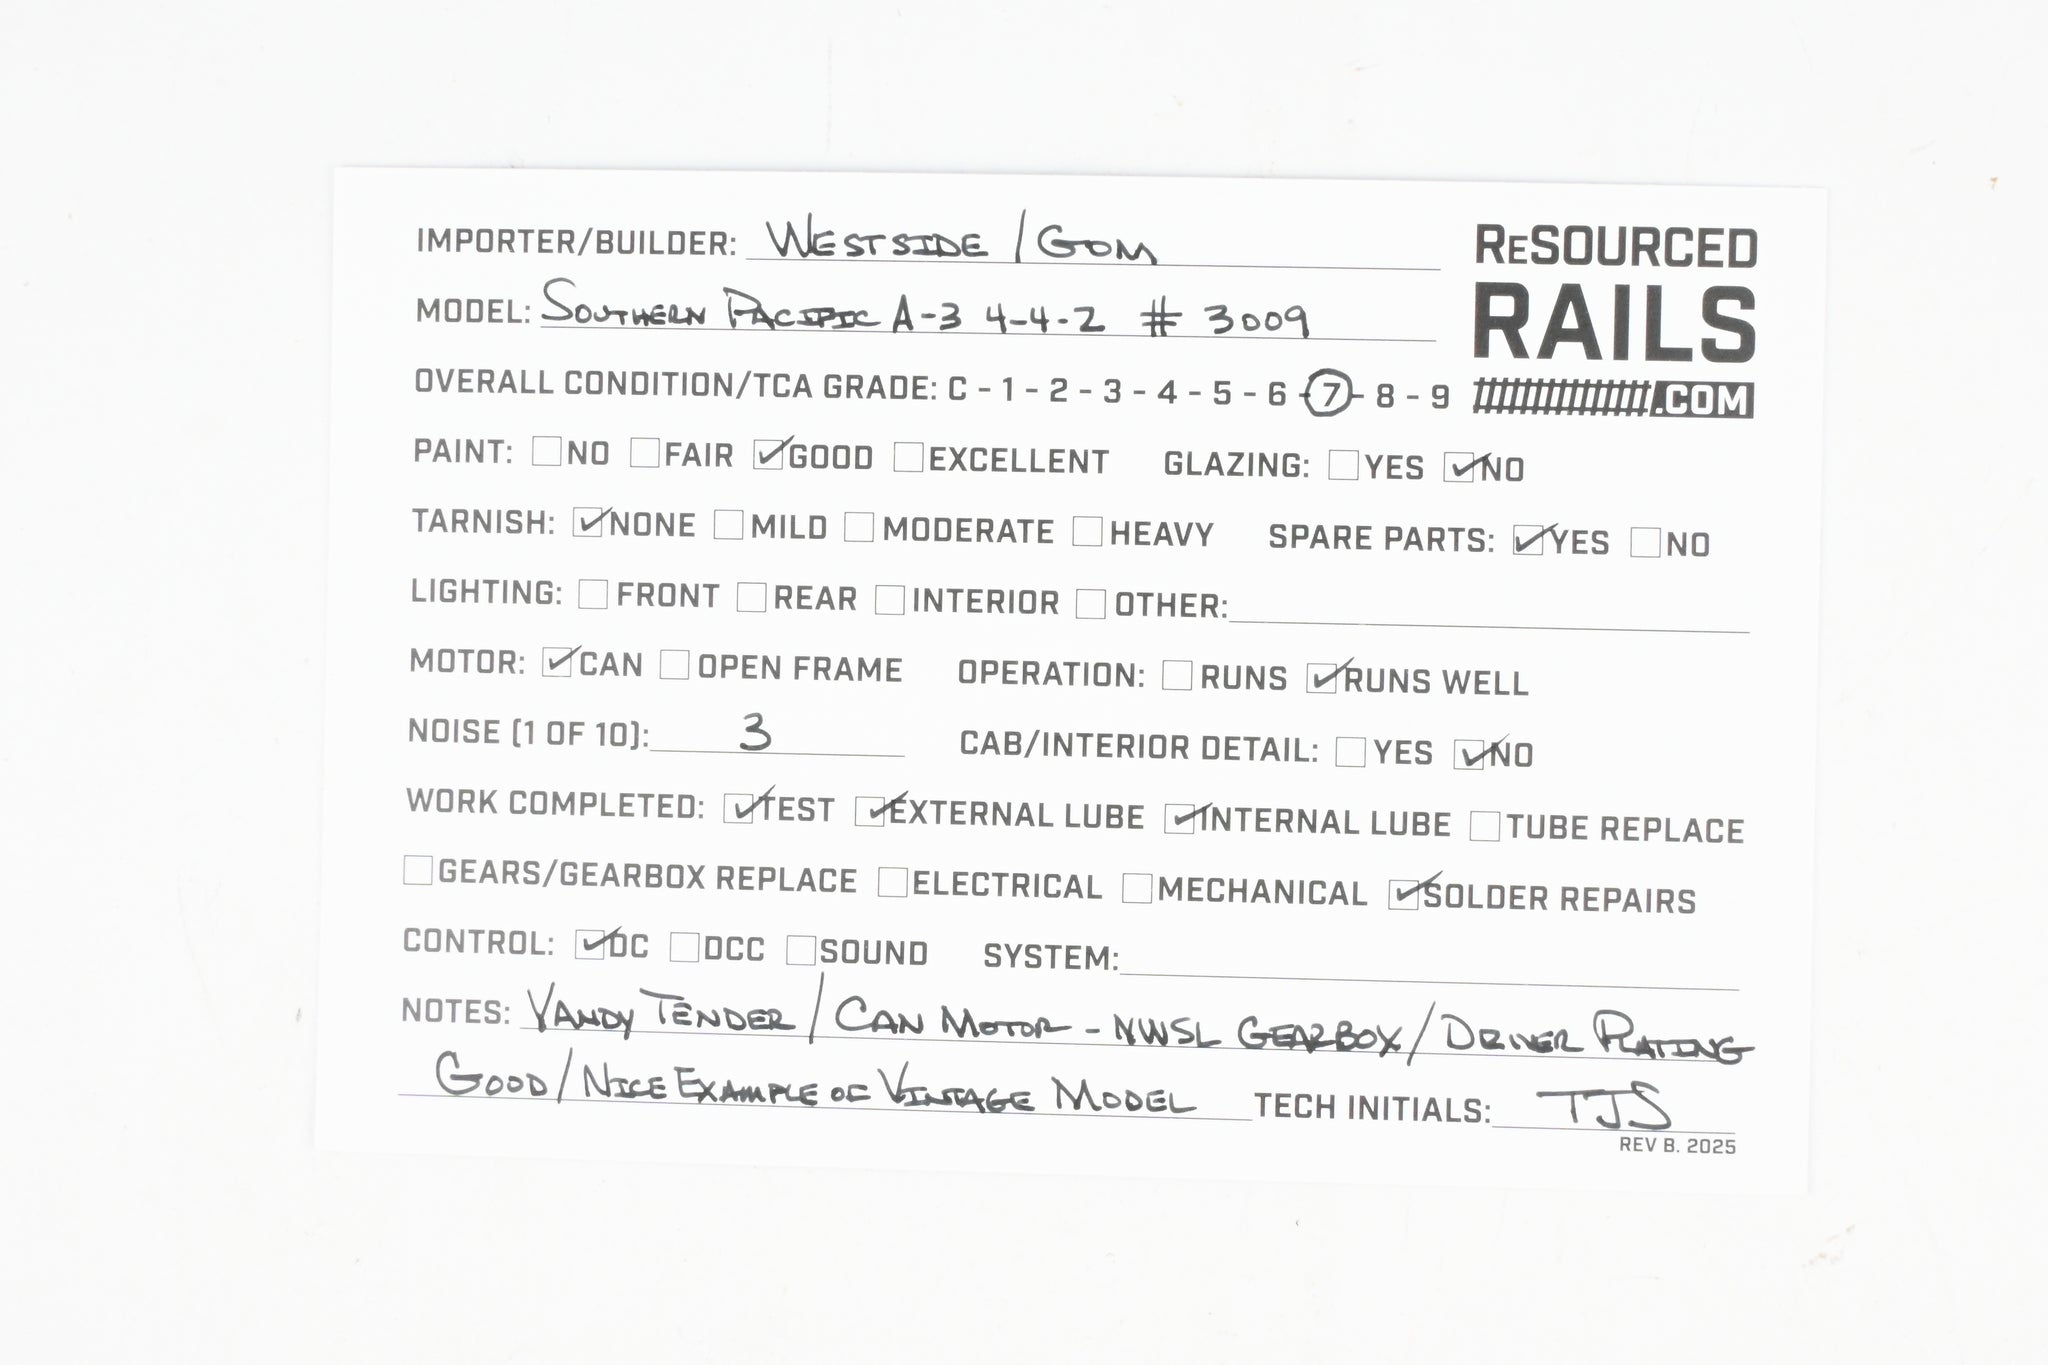 IMPORTER/BUILDER: WESTSIDE / GOM
ReSOURCED
RAILS
.COM
MODEL: SOUTHERN PACIFIC A-3 4-4-2 # 3009
OVERALL CONDITION/TCA GRADE: C - 1 - 2 - 3 - 4 - 5 - 6 - 7 - 8 - 9
PAINT: ☐ NO ☐ FAIR ☑ GOOD ☐ EXCELLENT GLAZING: ☐ YES ☑ NO
TARNISH: ☑ NONE ☐ MILD ☐ MODERATE ☐ HEAVY SPARE PARTS: ☑ YES ☐ NO
LIGHTING: ☐ FRONT ☐ REAR ☐ INTERIOR ☐ OTHER:
MOTOR: ☑ CAN ☐ OPEN FRAME OPERATION: ☐ RUNS ☑ RUNS WELL
NOISE (1 OF 10): 3 CAB/INTERIOR DETAIL: ☐ YES ☑ NO
WORK COMPLETED: ☑ TEST ☑ EXTERNAL LUBE ☑ INTERNAL LUBE ☐ TUBE REPLACE
☐ GEARS/GEARBOX REPLACE ☐ ELECTRICAL ☐ MECHANICAL ☑ SOLDER REPAIRS
CONTROL: ☑ DC ☐ DCC ☐ SOUND SYSTEM:
NOTES: VANDY TENDER / CAN MOTOR - NWSL GEARBOX / DRIVER PLATING
GOOD / NICE EXAMPLE OF VINTAGE MODEL TECH INITIALS: TJS
REV B. 2025